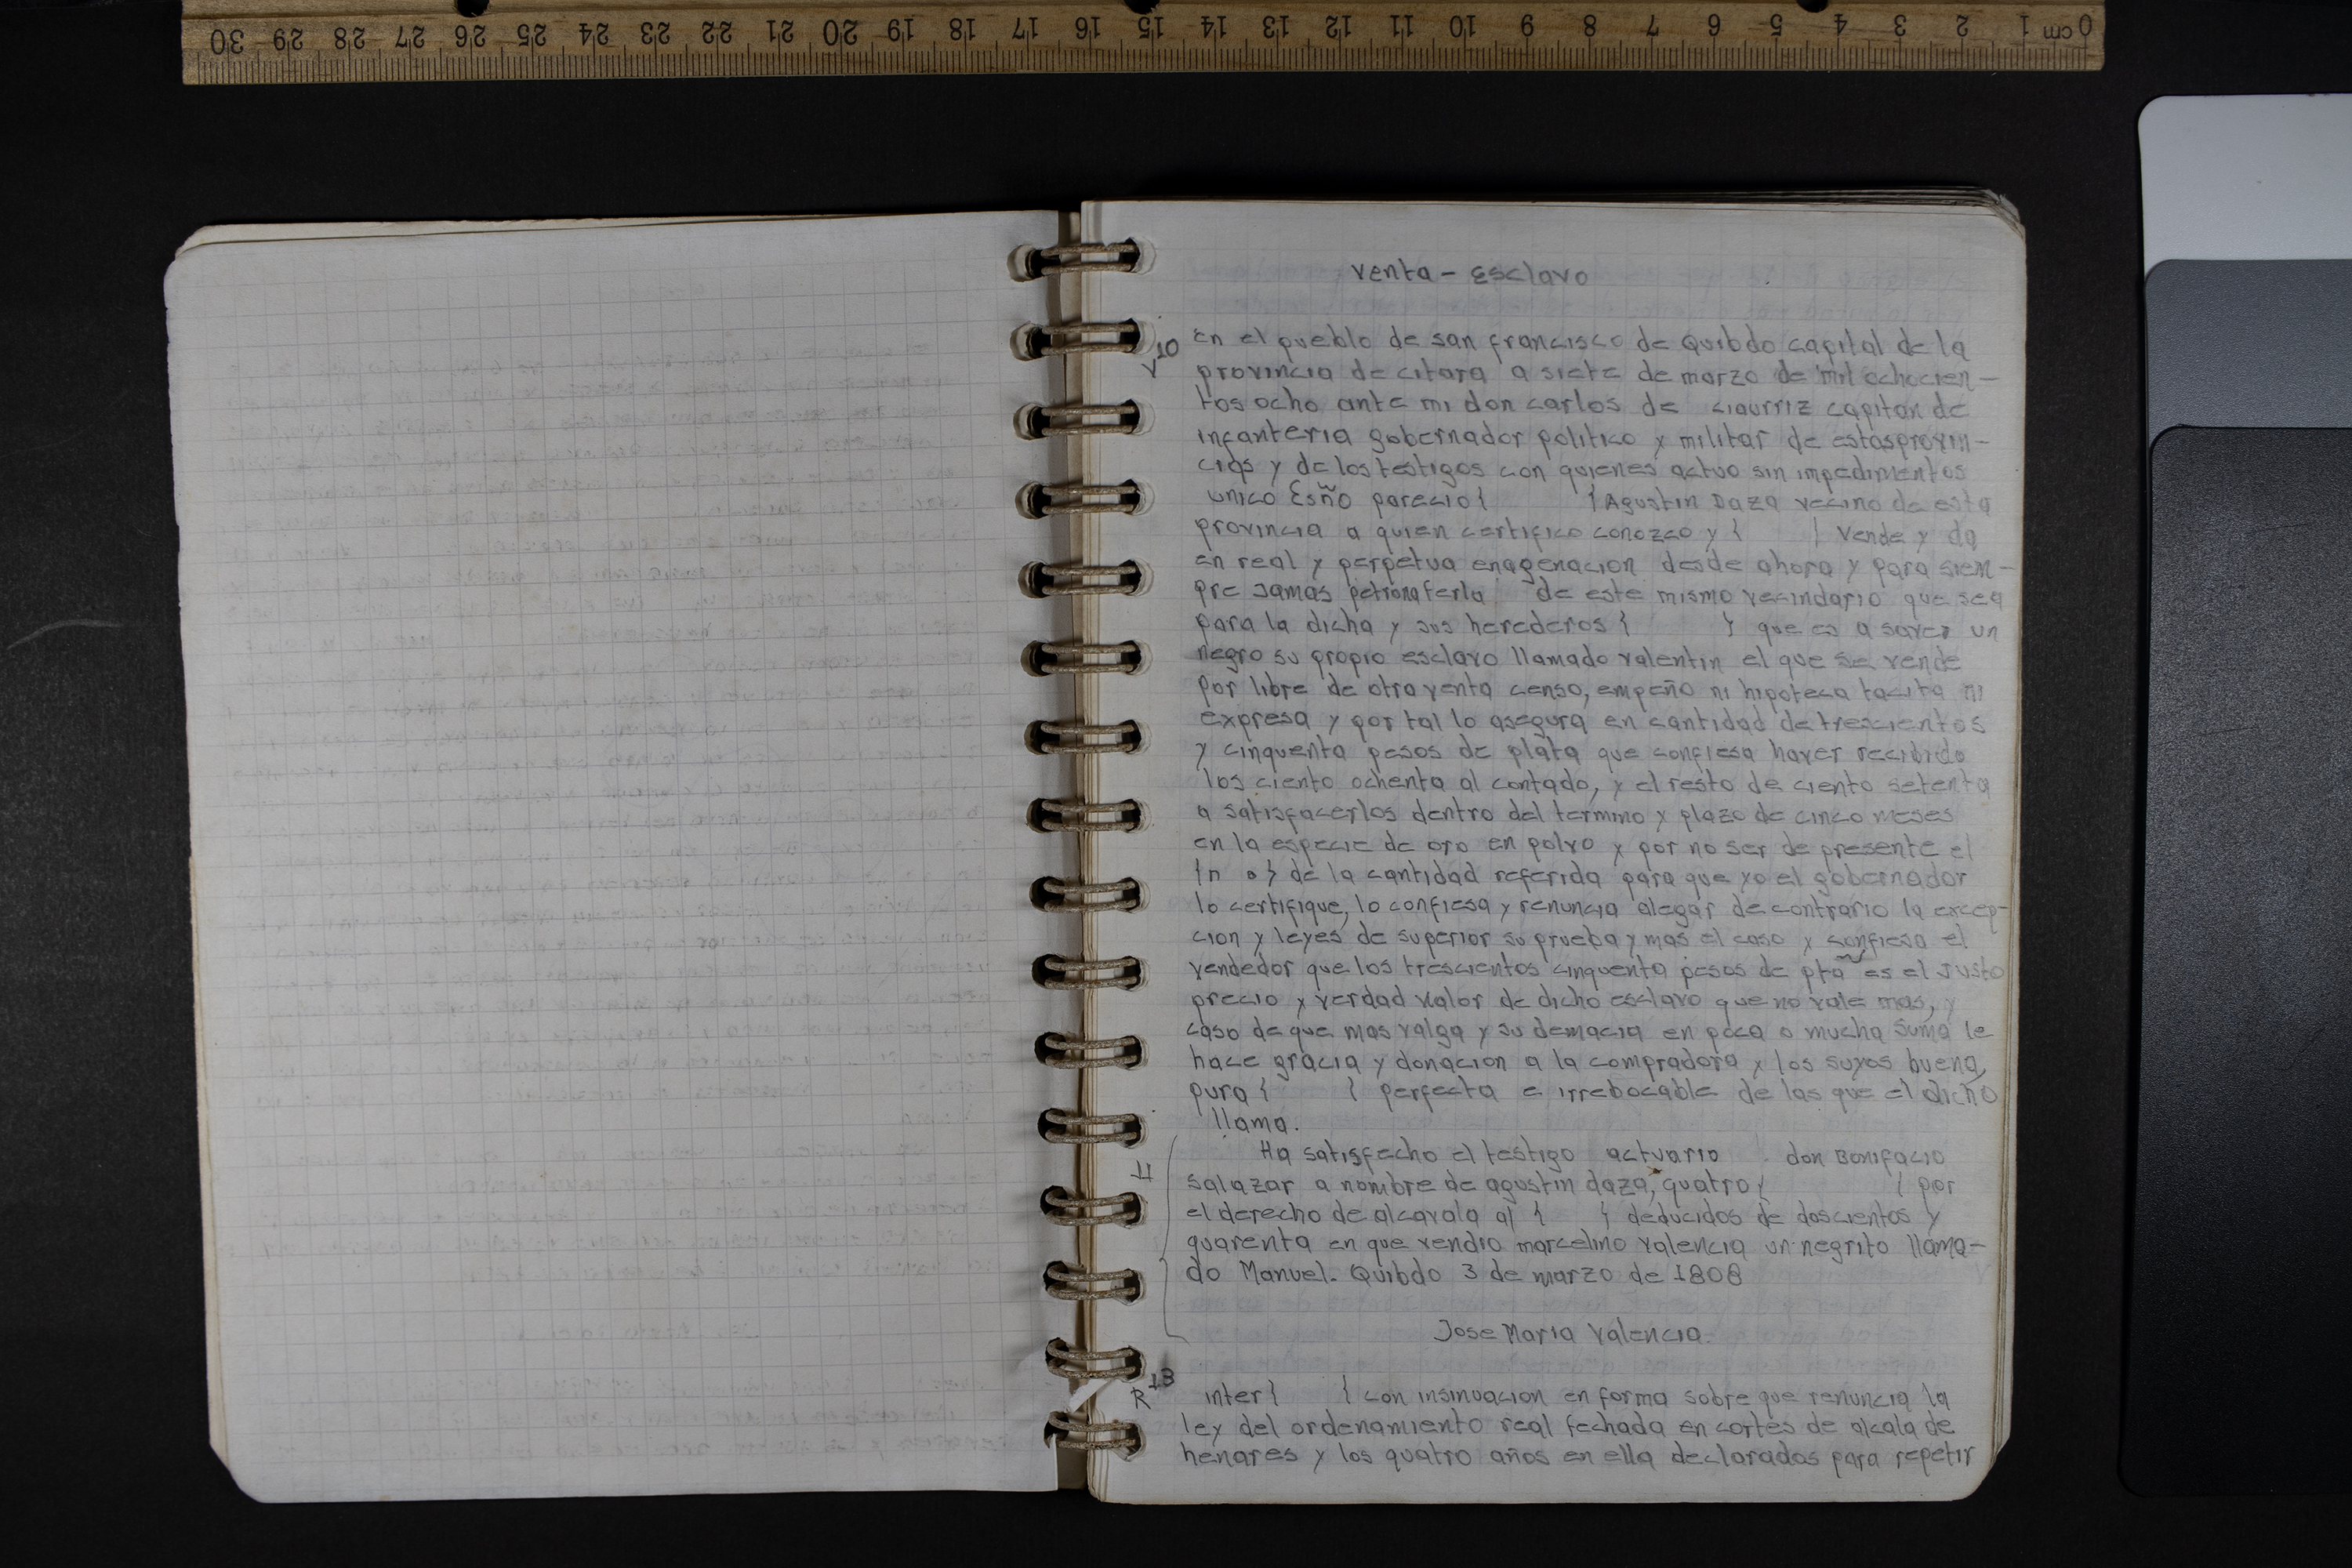 0 cm 1 2 3 4 5 6 7 8 9 10 11 12 13 14 15 16 17 18 19 20 21 22 23 24 25 26 27 28 29 30
Venta - Esclavo
V 10 En el pueblo de san francisco de Quibdo capital de la
provincia de citara a siete de marzo de mil ochocien-
tos ocho ante mi don carlos de ciaurriz capitan de
infanteria gobernador politico y militar de estas provin-
cias y de los testigos con quienes actuo sin impedimentos
unico Esño parecio { } Agustin Daza vecino de esta
provincia a quien certifico conozco y { } Vende y da
en real y perpetua enagenacion desde ahora y para siem-
pre Jamas petrona ferla de este mismo vecindario que sea
para la dicha y sus herederos { } que es a saver un
negro su propio esclavo llamado valentin el que se vende
por libre de otra venta censo, empeño ni hipoteca tacita ni
expresa y por tal lo asegura en cantidad de trescientos
y cinquenta pesos de plata que confiesa haver recibido
los ciento ochenta al contado, y el resto de ciento setenta
a satisfacerlos dentro del termino y plazo de cinco meses
en la especie de oro en polvo y por no ser de presente el
{n o} de la cantidad referida para que yo el gobernador
lo certifique, lo confiesa y renuncia alegar de contrario la excep-
cion y leyes de superior su prueba y mas el caso y confiesa el
vendedor que los trescientos cinquenta pesos de pta es el Justo
precio y verdad valor de dicho esclavo que no vale mas, y
caso de que mas valga y su demacia en poca o mucha suma le
hace gracia y donacion a la compradora y los suyos buena,
pura { } perfecta e irrebocable de las que el dicho
llama.
11 Ha satisfecho el testigo actuario don Bonifacio
salazar a nombre de agustin daza, quatro { } por
el derecho de alcavala al { } deducidos de doscientos y
quarenta en que vendio marcelino valencia un negrito llama-
do Manuel. Quibdo 3 de marzo de 1808
Jose Maria Valencia.
R 13 inter { } con insinuacion en forma sobre que renuncia la
ley del ordenamiento real fechada en cortes de alcala de
henares y los quatro años en ella declarados para repetir